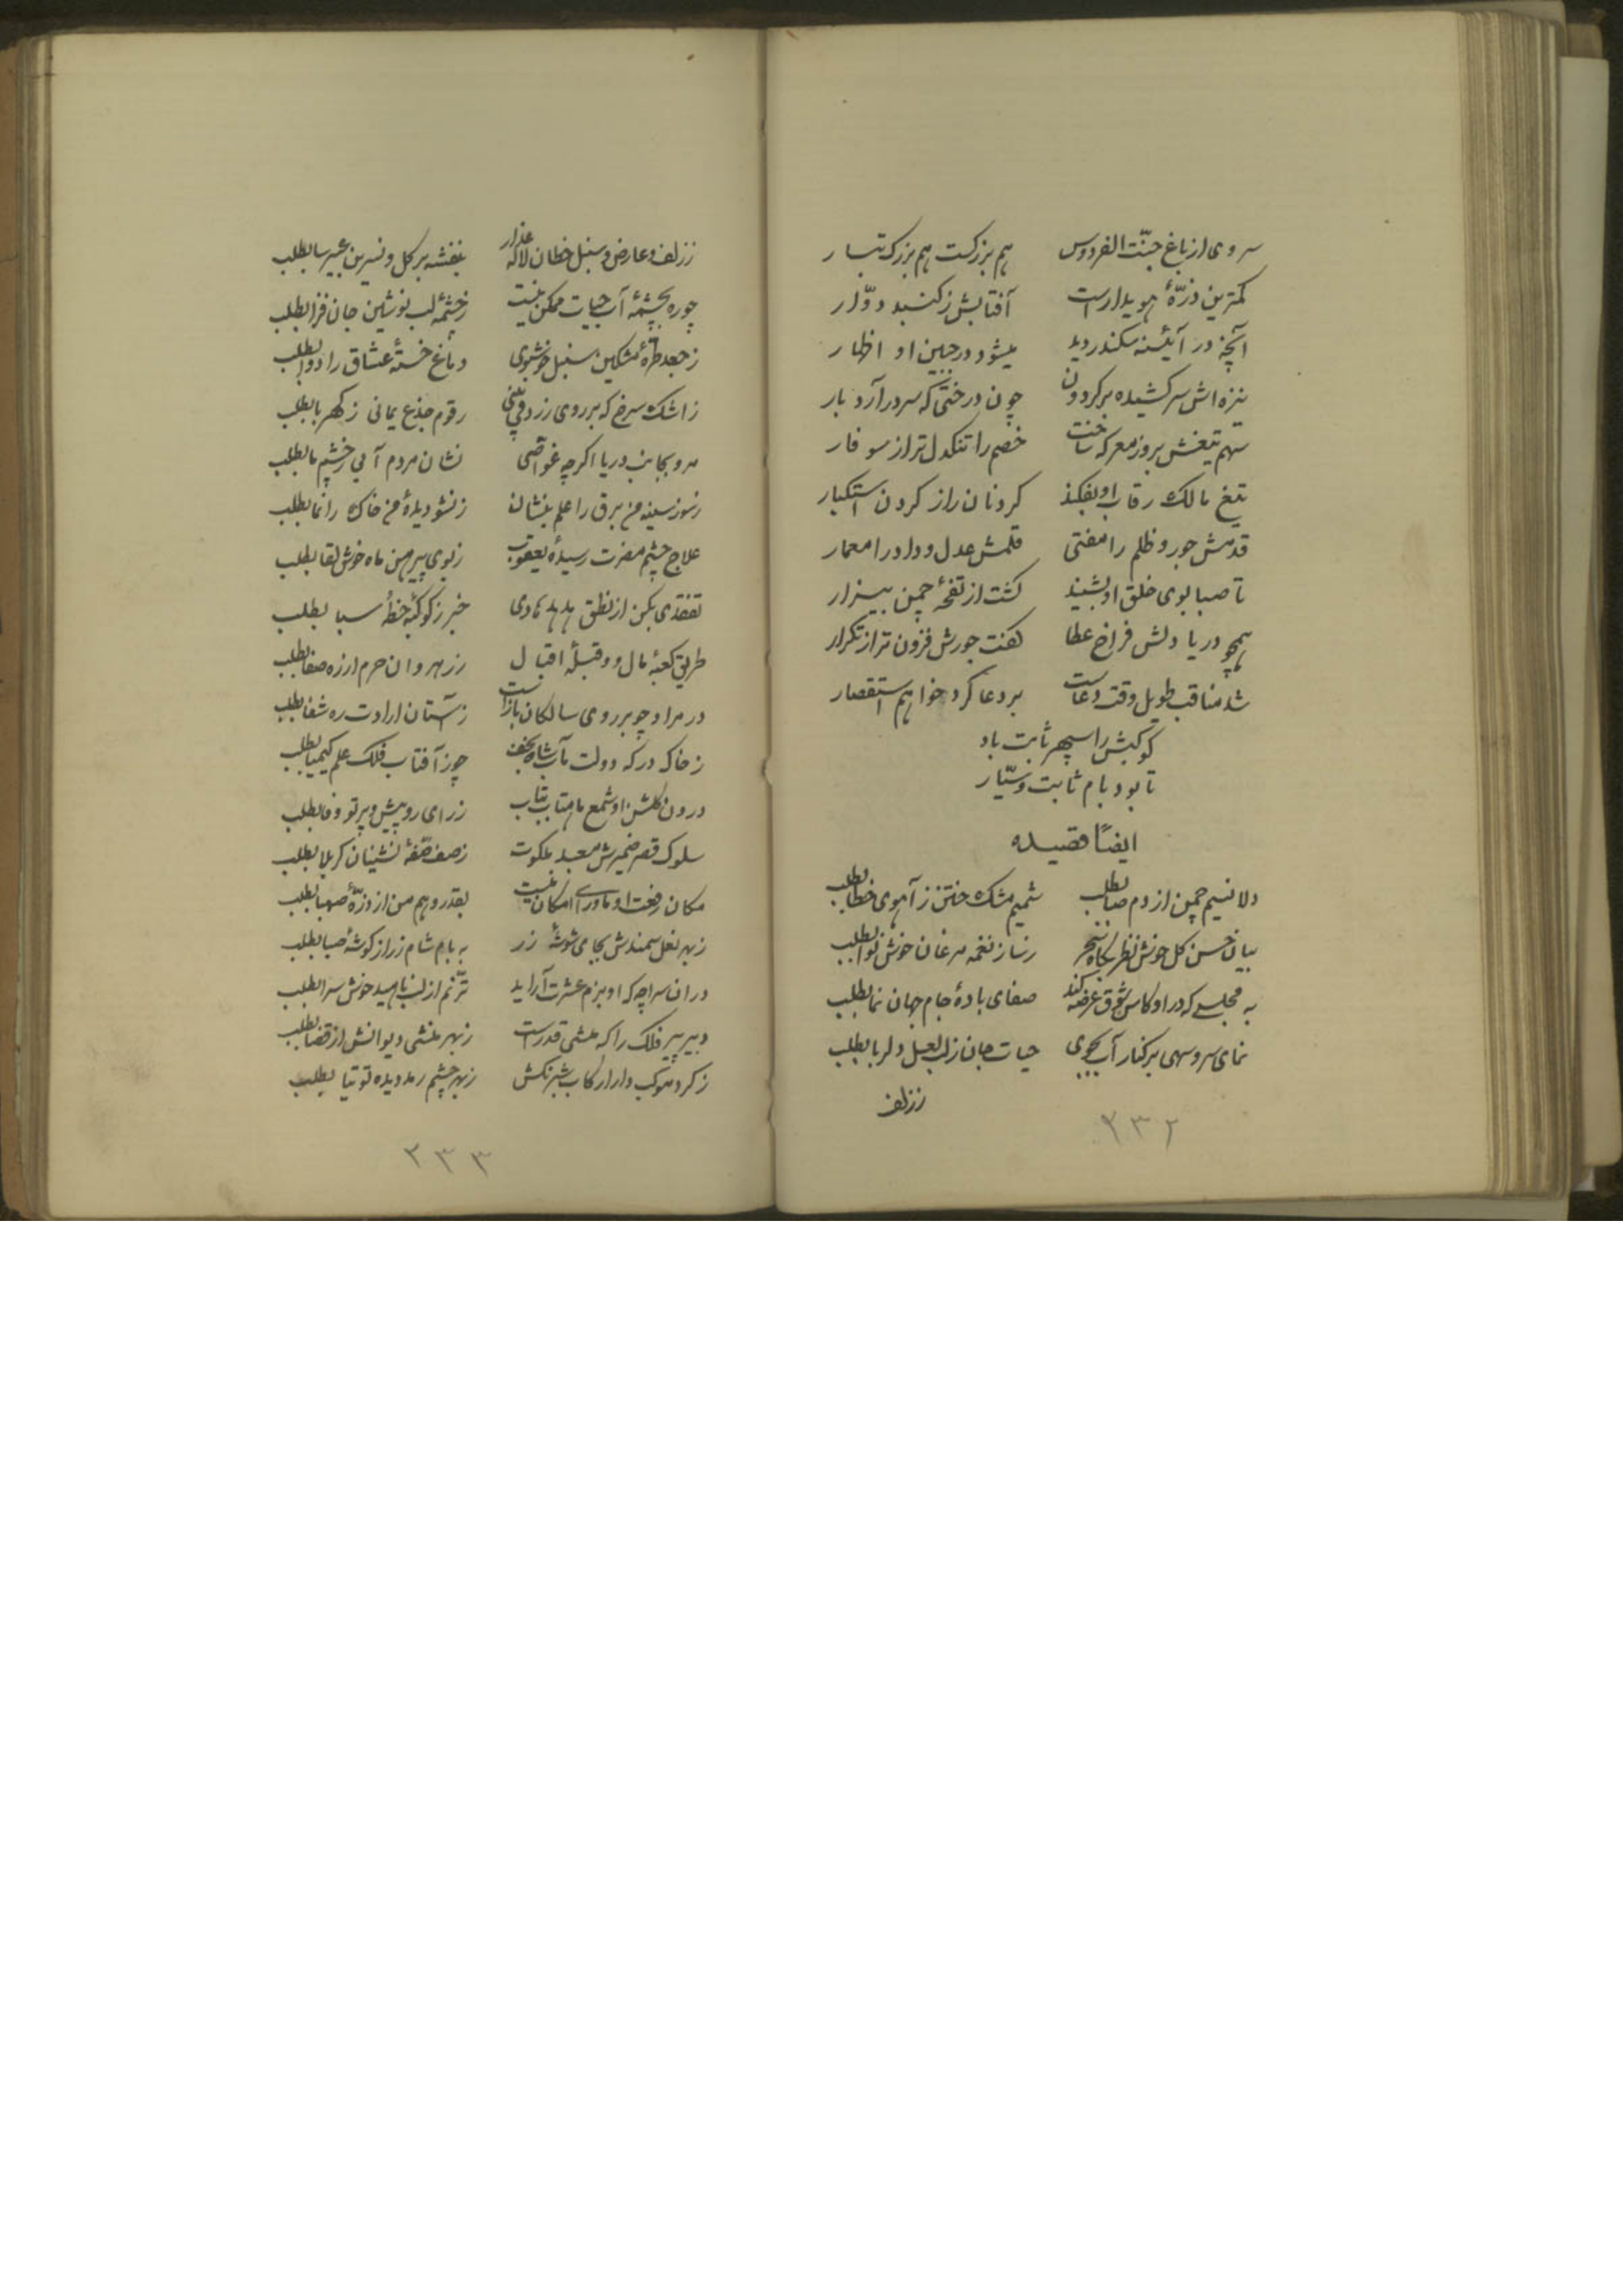 سروی از باغ جنّت الفردوس هم بزرکست هم بزرک تبار
کمترین ذرّهٔ هویداراست آفتابش ز کنبد دوّار
آنچه در آیینه سکندر دید میشود در جبین او اظهار
نیزه اش سر کشیده بر کردون چون درختی که سر در آرد بار
سهم تیغش بروز معرکه ساخت خصم را تنکدل تر از سوفار
تیغ مالک رقاب او بفکند کردنان را ز کردن استکبار
قدمش جور و ظلم را مفتی قلمش عدل و داد را معمار
تا صبا بوی خلق او بشنید کشت از نفحهٔ چمن بیزار
همچو دریا دلش فراخ عطا کفت جورش فزون تر از تکرار
شد مناقب طویل وقت دعاست بر دعا کرد خواهم استقصار
کوکبش را سپهر ثابت باد
تا بود بام ثابت و سیّار
ایضاً قصیده
دلا نسیم چمن از دم صبا بطلب شمیم مشک ختن ز آهوی خطا بطلب
بیان حسن کل خوش نظر بکاه سحر ز ساز نغمه مرغان خوش نوا بطلب
به مجلسی که در او کاس شوق عرضه کند صفای بادهٔ جام جهان نما بطلب
نمای سرو سهی بر کنار آب بجوی حیات جان ز لب لعل دلربا بطلب
ززلف
۲۳۲
ززلف و عارض و سنبل خطان لاله عذار بنفشه بر کل و نسرین عبیرسا بطلب
چو ره بچشمهٔ آب حیات ممکن نیست ز چشمهٔ لب نوشین جان فزا بطلب
ز جعد طرّهٔ مشکین سنبل خوشبوی دماغ خستهٔ عشاق را دوا بطلب
ز اشک سرخ که بر روی زرد می بینی رقوم جذع یمانی ز کهربا بطلب
مرو بجانب دریا اکرچه غوّاصی نشان مردم آبی ز چشم ما بطلب
ز سوز سینه من برق را علم بنشان ز نشو دیدهٔ من خاک را نما بطلب
علاج چشم مضرت رسیدهٔ یعقوب ز بوی پیرهن ماه خوش لقا بطلب
تفقدی بکن از نطق هدهد هادی خبر ز کوکبهٔ خطهٔ سبا بطلب
طریق کعبهٔ مال و دو قبلهٔ اقبال ز رهروان حرم از ره صفا بطلب
در مراد چو بر روی سالکان بازاست ز آستان ارادت ره شفا بطلب
ز خاک درکه دولت مآب شاه نجف چوز آفتاب فلک علم کیمیا بطلب
درون کلشن او شمع ماهتاب بتاب ز رای روییش و پرتو وفا بطلب
سلوک قصر ضمیرش معبد ملکوت ز صف صفّهٔ نشینان کربلا بطلب
مکان رفعت او ماورای امکان نیست بقدر وهم من از ذرّهٔ صهبا بطلب
ز بهر نعل سمندش بجای شوشهٔ زر به بام شام زر از کوشهٔ ضیا بطلب
در ان سراچه که او بزم عشرت آراید ترّنم از لب ناهید خوش سرا بطلب
دبیر پیر فلک را که منشی قدرست ز بهر منشی دیوانش از قضا بطلب
ز کرد موکب دارا رکاب شبرنکش ز بهر چشم رمد دیده توتیا بطلب
۲۳۳